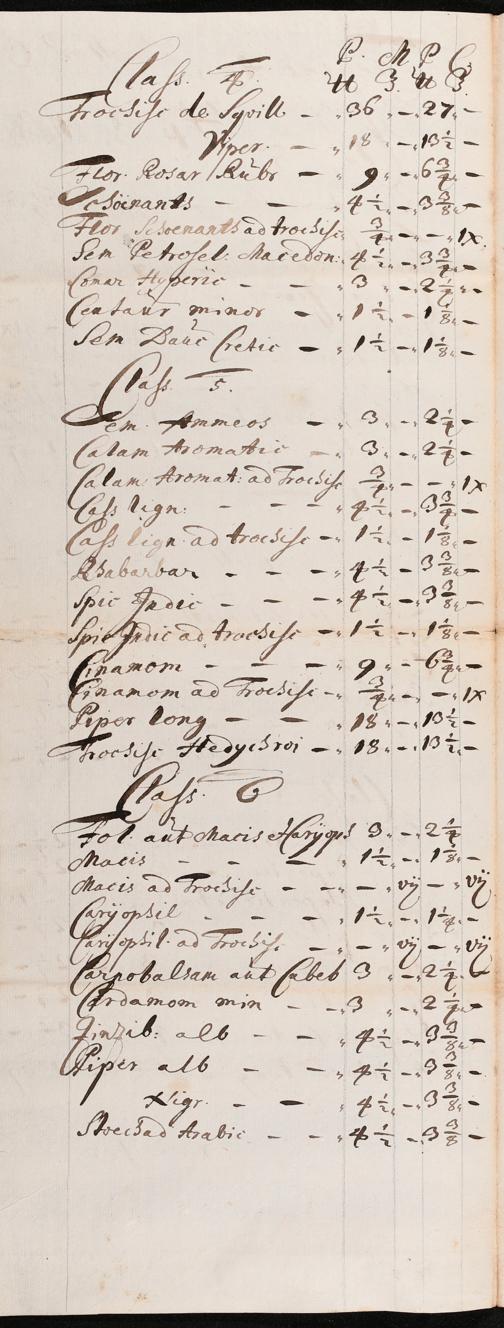 P. M P. C.
Class. 4. ℔ ʒ ℔ ʒ
Trochisc de Sqvill - " 36 " - " 27 " -
Viper. - " 18 " - " 13 1/2 " -
Flor. Rosar Rubr - " 9 " - " 6 3/4 " -
Schönants - - - " 4 1/2 " - " 3 3/8 " -
Flor Schoenants ad trochisc " 3/4 " - " - " ix
Sem Petrosel: Macedon: " 4 1/2 " - " 3 3/8 " -
Comar Hyperic - " 3 " - " 2 1/4 " -
Centaur minor - " 1 1/2 " - " 1 1/8 " -
Sem Dauc Cretic - " 1 1/2 - " 1 1/8 " -
Class. 5.
Sem. Ammeos - " 3 " - " 2 1/4 -
Calam Aromatic - " 3 " - " 2 1/4 -
Calam: Aromat: ad Trochisc " 3/4 " - - " ix
Cass lign: - - - " 4 1/2 " - " 3 3/8 " -
Cass lign: ad trochisc - " 1 1/2 - " 1 1/8 " -
Rhabarbar - - - " 4 1/2 " - " 3 3/8 " -
Spic Indic - - - " 4 1/2 " - " 3 3/8 " -
Spic Indic ad trochisc - " 1 1/2 - " 1 1/8 " -
Cinamom - - - " 9 " - " 6 3/4 " -
Cinamom ad Trochisc - " 3/4 " - " - " ix
Piper long - - " 18 " - " 13 1/2 " -
Trochisc Hedychroi - " 18 " - " 13 1/2 " -
Class. 6
Fol. aut Macis Caryoph 3 " - " 2 1/4 -
Macis - - - " 1 1/2 " - " 1 1/8 " -
Macis ad Trochisc - - " - " vij - " vij
Caryophil - - - " 1 1/2 " - " 1 1/8 " -
Caryophil: ad Trochisc. - " - " vij - " vij
Carpobalsam aut Cubeb 3 " - " 2 1/4 -
Cardamom min - " 3 " - " 2 1/4 " -
Zinzib: alb - - " 4 1/2 " - " 3 3/8 " -
Piper alb - - " 4 1/2 " - " 3 3/8 " -
Nigr. - - " 4 1/2 " - " 3 3/8 -
Stoechad Arabic - - " 4 1/2 - " 3 3/8 -